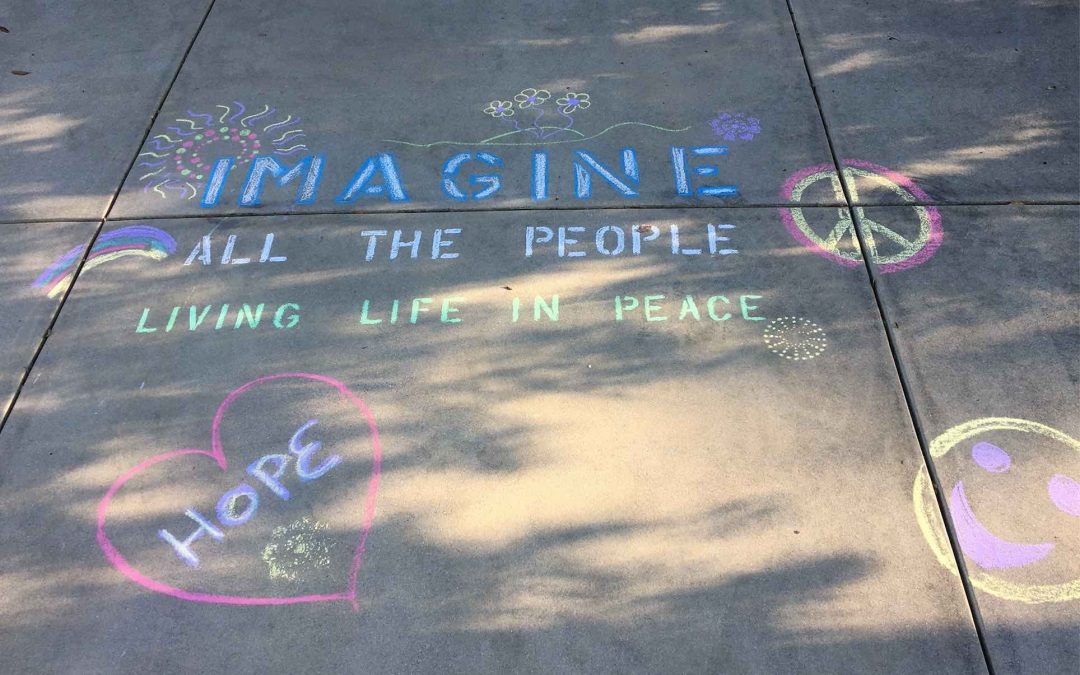 IMAGINE
ALL THE PEOPLE
LIVING LIFE IN PEACE
HOPE